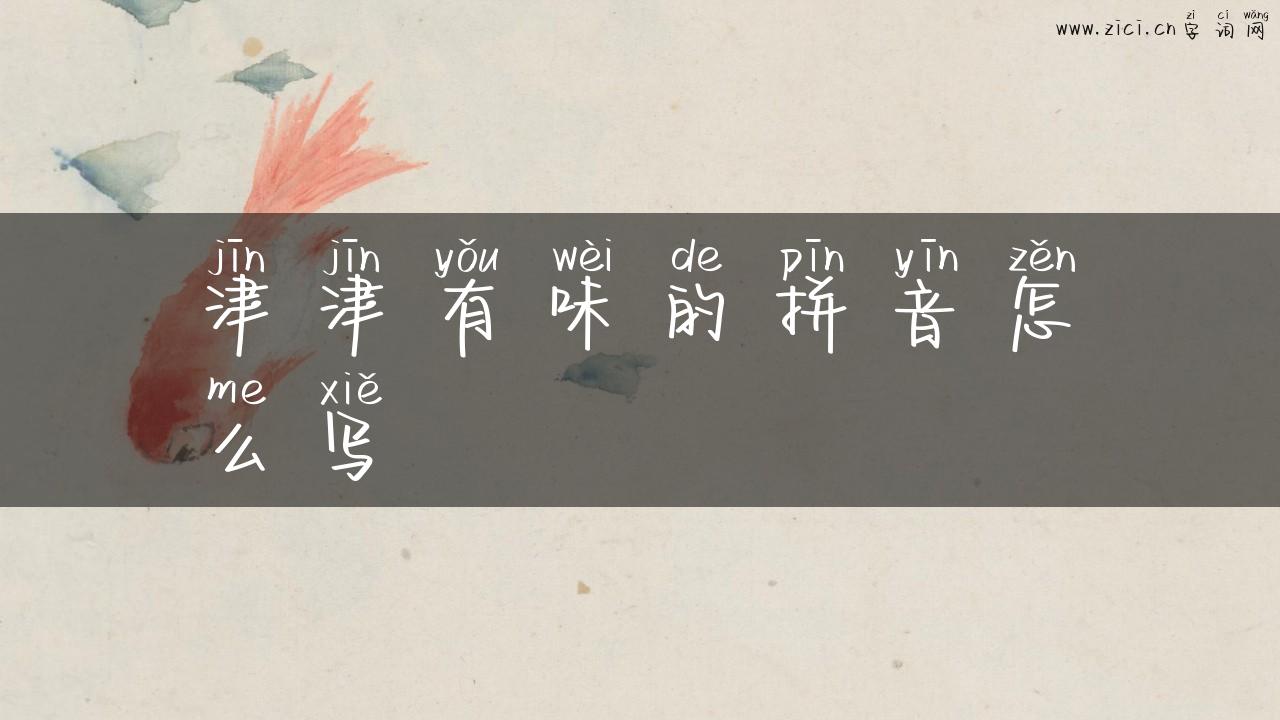 zì cí wǎng
www.zici.cn 字词网
jīn jīn yǒu wèi de pīn yīn zěn
津津有味的拼音怎
me xiě
么写